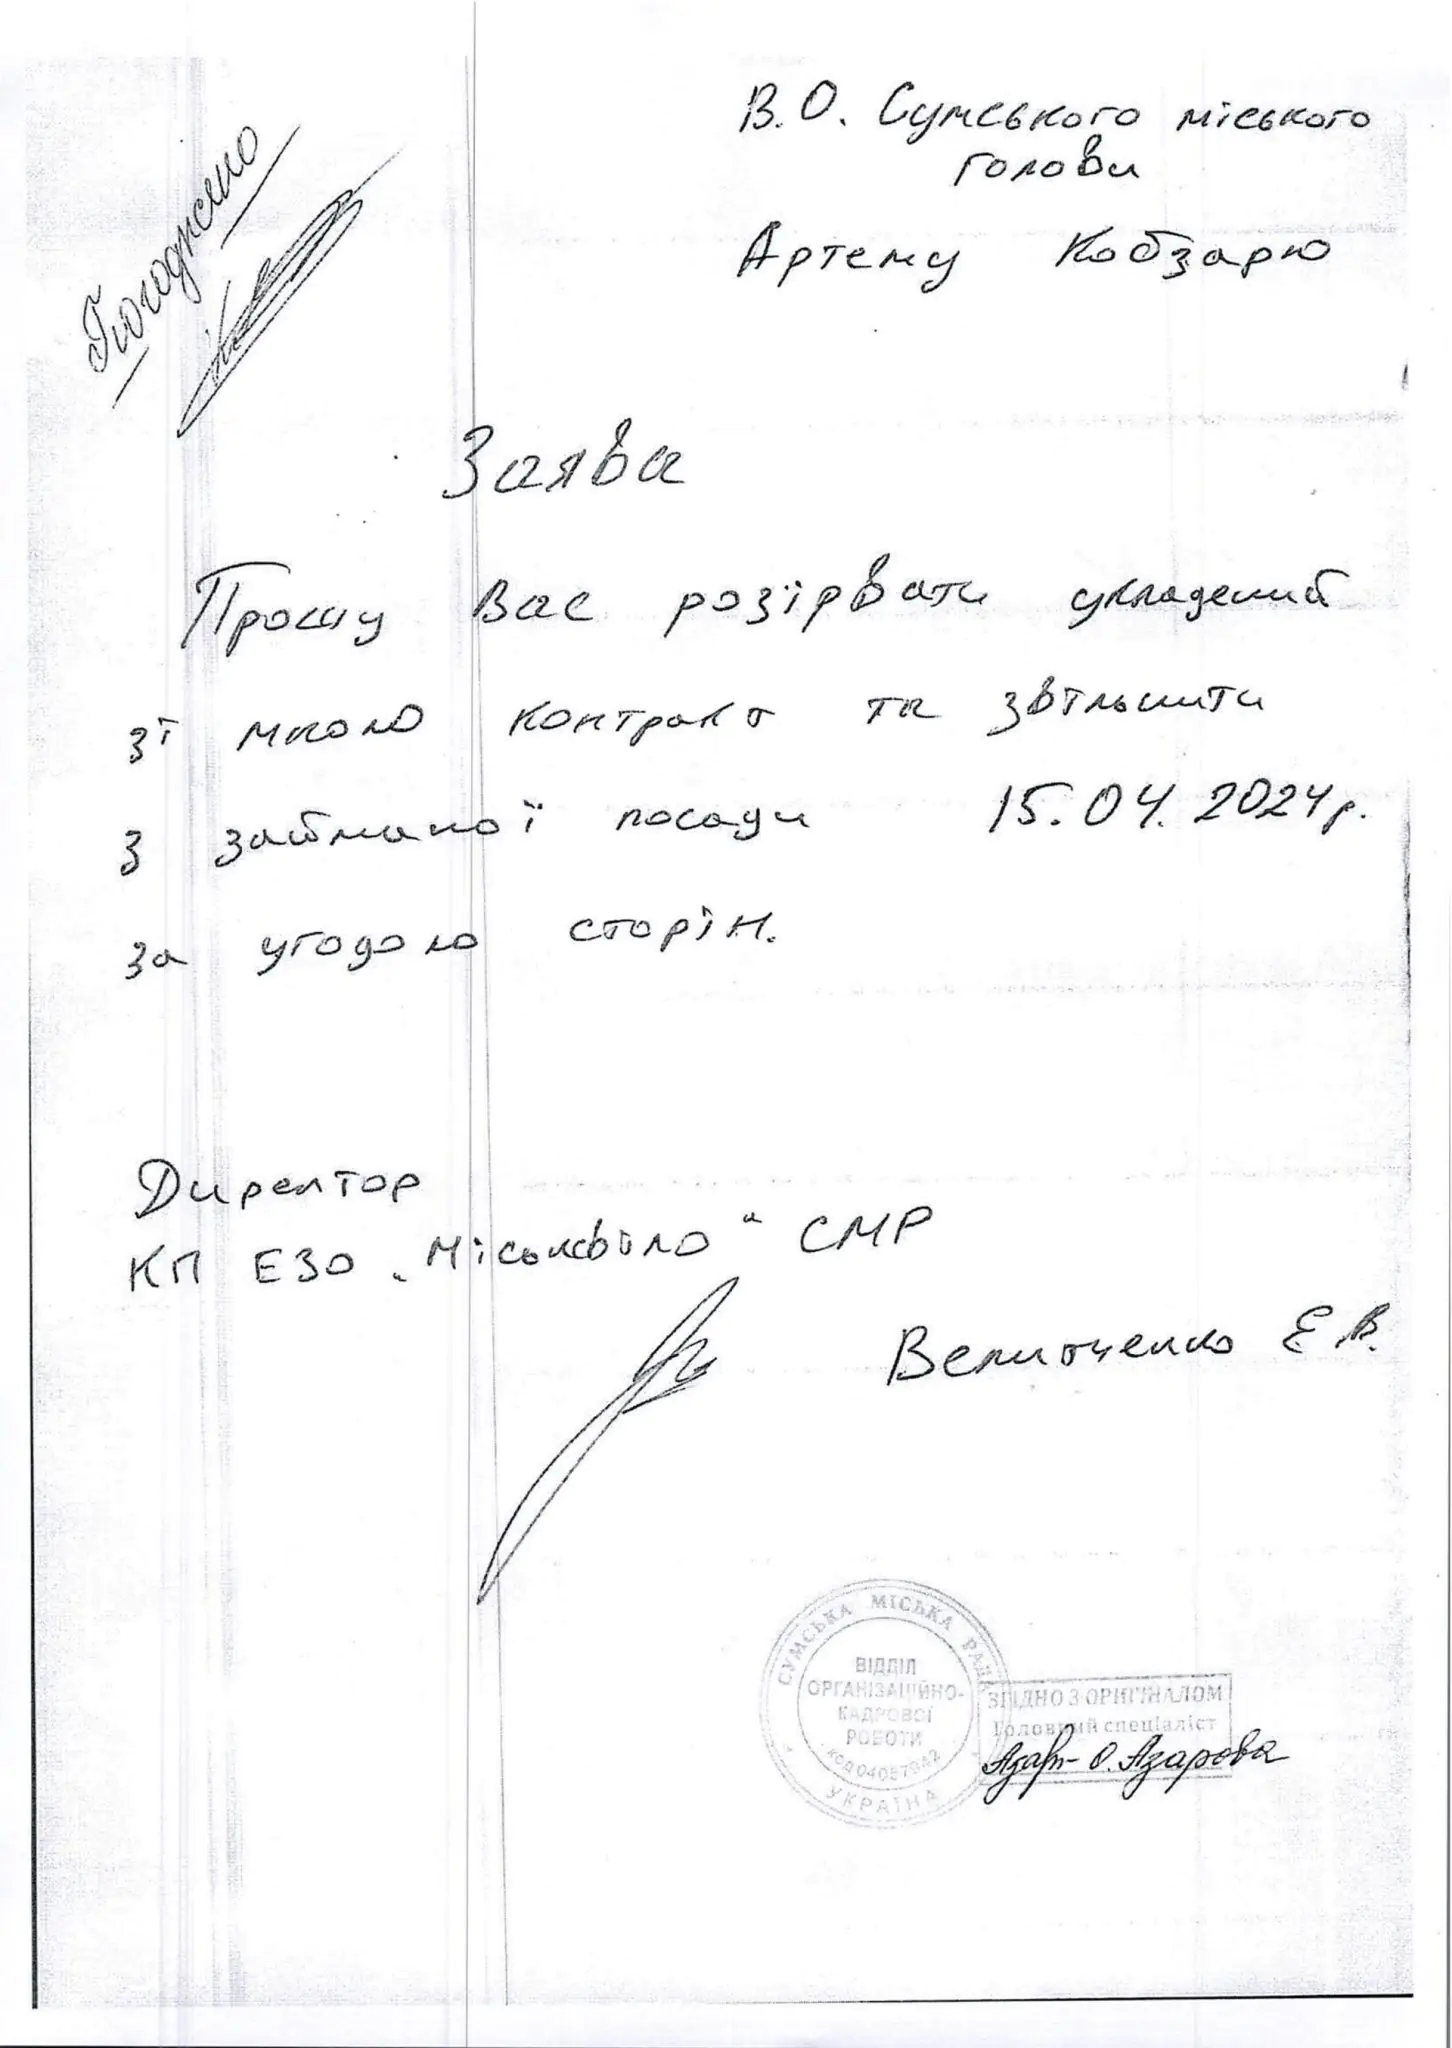 Погоджено
В.О. Сумського міського
голови
Артему Кобзарю
Заява
Прошу Вас розірвати укладений
зі мною контракт та звільнити
з займаної посади 15.04.2024р.
за угодою сторін.
Директор
КП ЕЗО "Міськсвітло" СМР
Велитченко Є.В.
СУМСЬКА МІСЬКА РАДА
ВІДДІЛ
ОРГАНІЗАЦІЙНО-
КАДРОВОЇ
РОБОТИ
код 04057942
УКРАЇНА
ЗГІДНО З ОРИГІНАЛОМ
Головний спеціаліст
О. Азарова